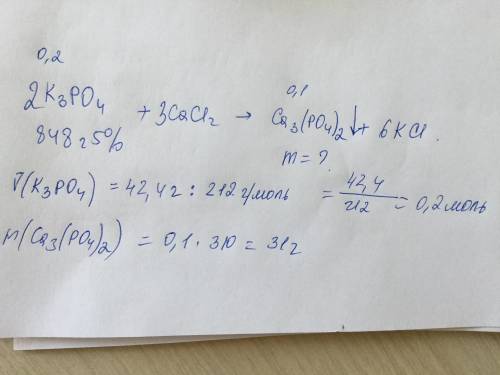 0,2
0,1
2K₃PO₄ + 3CaCl₂ → Ca₃(PO₄)₂↓ + 6KCl.
848г 5%
m = ?
ν(K₃PO₄) = 42,4г : 212 г/моль = 42,4/212 = 0,2 моль
m(Ca₃(PO₄)₂) = 0,1 · 310 = 31г